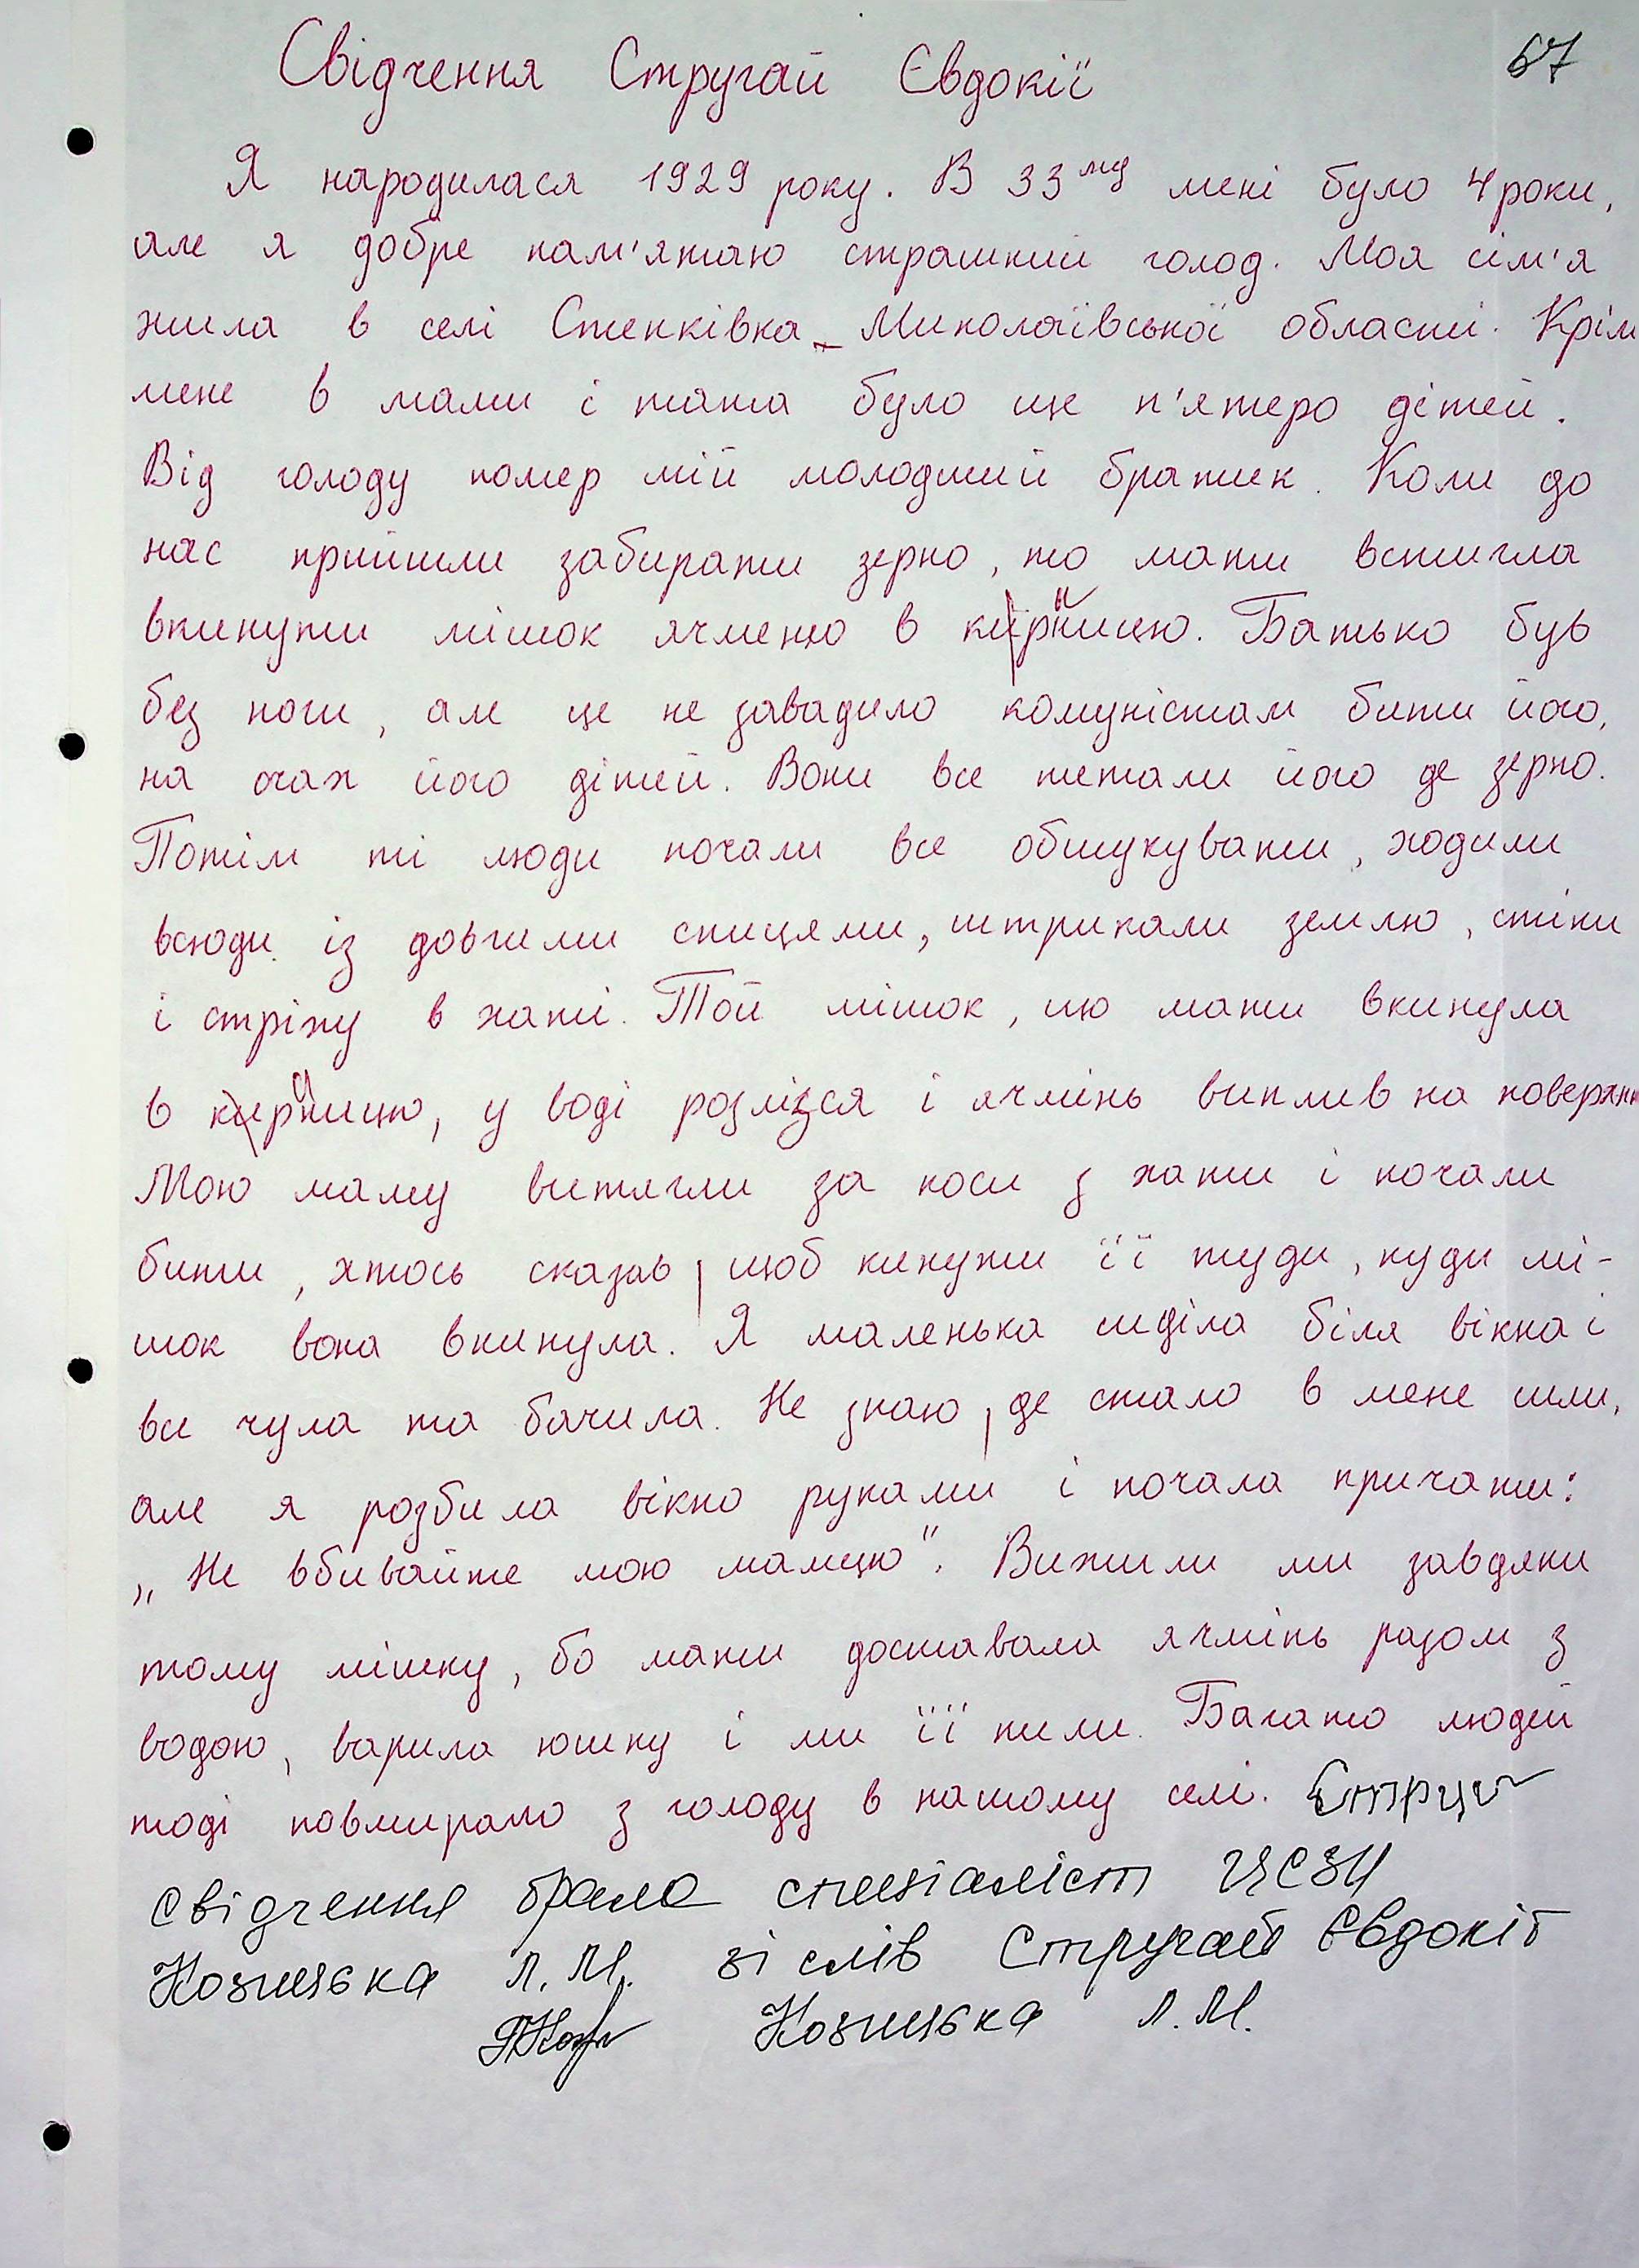 Свідчення Стругай Євдокії
67
Я народилася 1929 року. В 33му мені було 4 роки,
але я добре пам'ятаю страшний голод. Моя сім'я
жила в селі Степківка Миколаївської області. Крім
мене в мами і тата було ще п'ятеро дітей.
Від голоду помер мій молодший братик. Коли до
нас прийшли забирати зерно, то мати встигла
вкинути мішок ячменю в криницю. Батько був
без ноги, але це не завадило комуністам бити його,
на очах його дітей. Вони все питали його де зерно.
Потім ті люди почали все обшукувати, ходили
всюди із довгими спицями, штрикали землю, стіни
і стріху в хаті. Той мішок, що мати вкинула
в криницю, у воді розлізся і ячмінь виплив на поверхн
Мою маму витягли за коси з хати і почали
бити, хтось сказав, щоб кинути її туди, куди мі-
шок вона вкинула. Я маленька сиділа біля вікна і
все чула та бачила. Не знаю, де стало в мене сили,
але я розбила вікно руками і почала кричати:
„Не вбивайте мою мамцю". Вижили ми завдяки
тому мішку, бо мати доставала ячмінь разом з
водою, варила юшку і ми її пили. Багато людей
тоді повмирало з голоду в нашому селі.
Свідчення брала спеціаліст ЦСЗН
Козицька Л.М. зі слів Стругай Євдокії
Козицька Л.М.